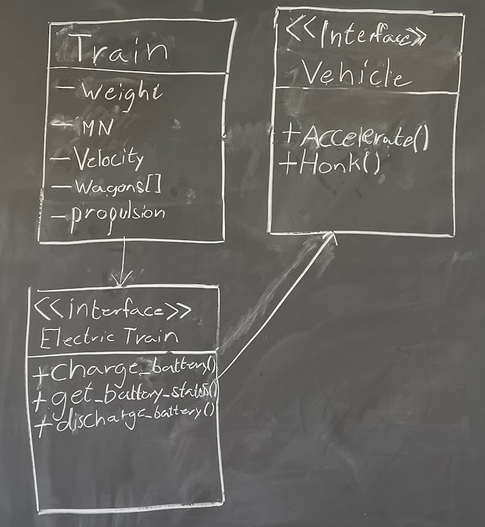 Train
- Weight
- MN
- Velocity
- Wagons[]
- propulsion
<<Interface>>
Vehicle
+Accelerate()
+Honk()
<<interface>>
Electric Train
+charge_battery()
+get_battery_status()
+discharge_battery()